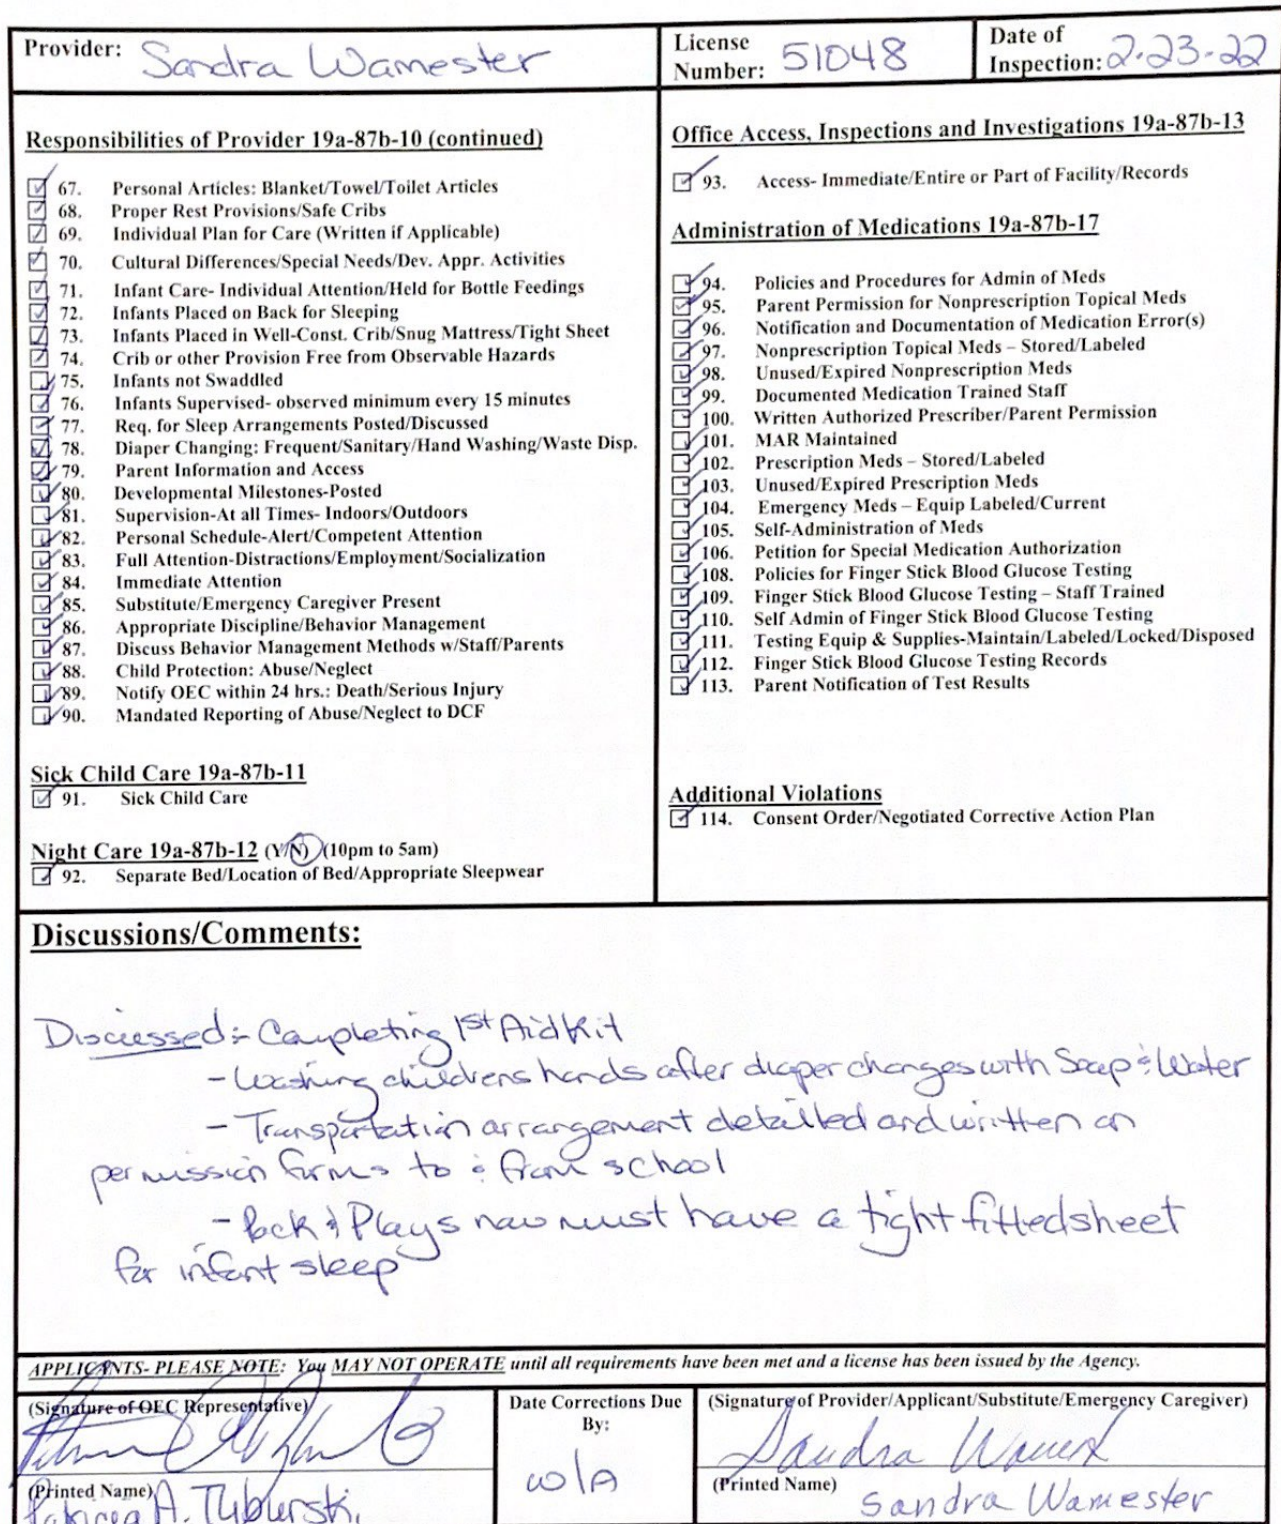 Provider: Sandra Wamester
License Number: 51048
Date of Inspection: 2-23-22
Responsibilities of Provider 19a-87b-10 (continued)
67. Personal Articles: Blanket/Towel/Toilet Articles
68. Proper Rest Provisions/Safe Cribs
69. Individual Plan for Care (Written if Applicable)
70. Cultural Differences/Special Needs/Dev. Appr. Activities
71. Infant Care- Individual Attention/Held for Bottle Feedings
72. Infants Placed on Back for Sleeping
73. Infants Placed in Well-Const. Crib/Snug Mattress/Tight Sheet
74. Crib or other Provision Free from Observable Hazards
75. Infants not Swaddled
76. Infants Supervised- observed minimum every 15 minutes
77. Req. for Sleep Arrangements Posted/Discussed
78. Diaper Changing: Frequent/Sanitary/Hand Washing/Waste Disp.
79. Parent Information and Access
80. Developmental Milestones-Posted
81. Supervision-At all Times- Indoors/Outdoors
82. Personal Schedule-Alert/Competent Attention
83. Full Attention-Distractions/Employment/Socialization
84. Immediate Attention
85. Substitute/Emergency Caregiver Present
86. Appropriate Discipline/Behavior Management
87. Discuss Behavior Management Methods w/Staff/Parents
88. Child Protection: Abuse/Neglect
89. Notify OEC within 24 hrs.: Death/Serious Injury
90. Mandated Reporting of Abuse/Neglect to DCF
Sick Child Care 19a-87b-11
91. Sick Child Care
Night Care 19a-87b-12 (Y/N) (10pm to 5am)
92. Separate Bed/Location of Bed/Appropriate Sleepwear
Office Access, Inspections and Investigations 19a-87b-13
93. Access- Immediate/Entire or Part of Facility/Records
Administration of Medications 19a-87b-17
94. Policies and Procedures for Admin of Meds
95. Parent Permission for Nonprescription Topical Meds
96. Notification and Documentation of Medication Error(s)
97. Nonprescription Topical Meds – Stored/Labeled
98. Unused/Expired Nonprescription Meds
99. Documented Medication Trained Staff
100. Written Authorized Prescriber/Parent Permission
101. MAR Maintained
102. Prescription Meds – Stored/Labeled
103. Unused/Expired Prescription Meds
104. Emergency Meds – Equip Labeled/Current
105. Self-Administration of Meds
106. Petition for Special Medication Authorization
108. Policies for Finger Stick Blood Glucose Testing
109. Finger Stick Blood Glucose Testing – Staff Trained
110. Self Admin of Finger Stick Blood Glucose Testing
111. Testing Equip & Supplies-Maintain/Labeled/Locked/Disposed
112. Finger Stick Blood Glucose Testing Records
113. Parent Notification of Test Results
Additional Violations
114. Consent Order/Negotiated Corrective Action Plan
Discussions/Comments:
Discussed: - Completing 1st Aid Kit
- Washing childrens hands after diaper changes with Soap & Water
- Transportation arrangement detailed and written on
permission forms to & from school
- Pack & Plays now must have a tight fitted sheet
for infant sleep
APPLICANTS- PLEASE NOTE: You MAY NOT OPERATE until all requirements have been met and a license has been issued by the Agency.
(Signature of OEC Representative)
(Printed Name)
Patricia A.
Date Corrections Due
By:
(Signature of Provider/Applicant/Substitute/Emergency Caregiver)
Sandra
(Printed Name)
Sandra Wamester